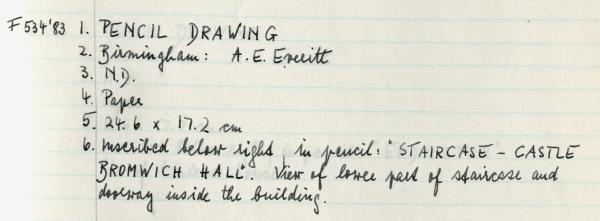 F534'83 1. PENCIL DRAWING
2. Birmingham: A.E. Everitt
3. N.D.
4. Paper
5. 24.6 x 17.2 cm
6. Inscribed below right, in pencil: "STAIRCASE - CASTLE
BROMWICH HALL". View of lower part of staircase and
doorway inside the building.